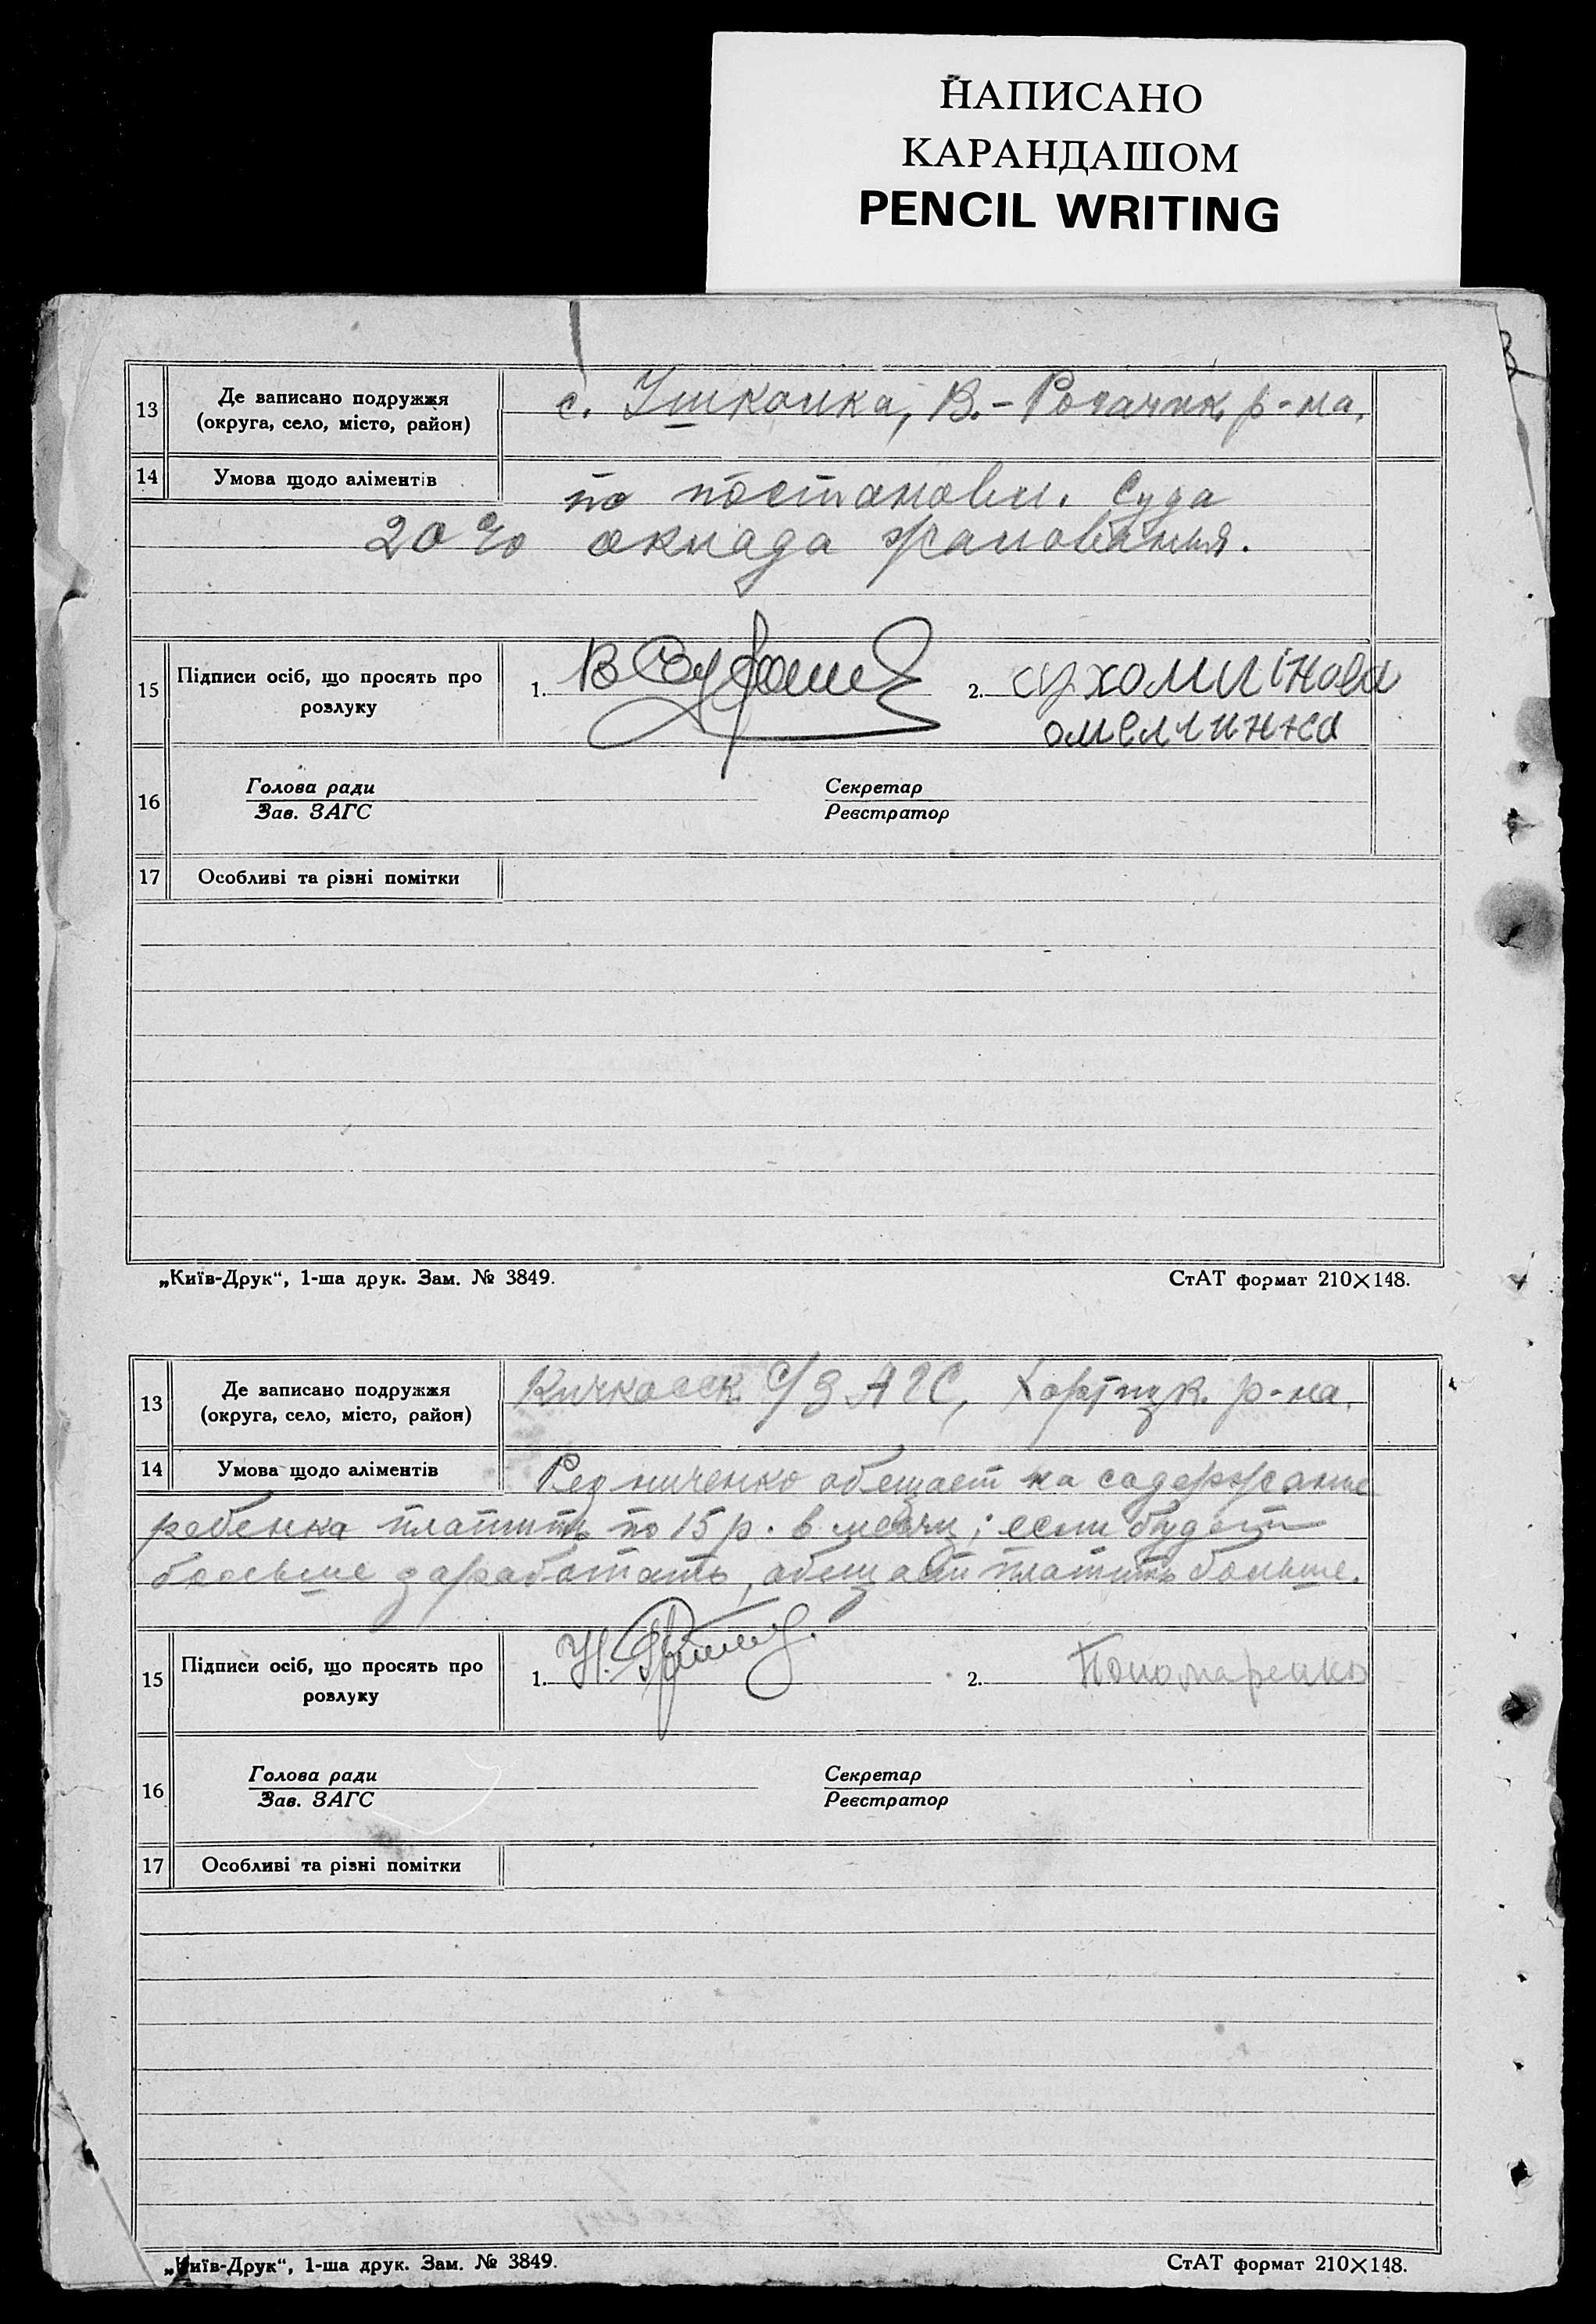 НАПИСАНО
КАРАНДАШОМ
PENCIL WRITING
13
Де записано подружжя
(округа, село, місто, район)
с. Ушкалка, В.-Рогачик. р-на.
14
Умова щодо аліментів
по постановл. Суда
20% оклада жалования.
15
Підписи осіб, що просять про
розлуку
1.
2. сухомлінова
омеллинка
16
Голова ради
Зав. ЗАГС
Секретар
Реєстратор
17
Особливі та різні помітки
„Київ-Друк“, 1-ша друк. Зам. № 3849.
СтАТ формат 210×148.
13
Де записано подружжя
(округа, село, місто, район)
Кичкасск. С/ЗАГС, Хортицк. р-на.
14
Умова щодо аліментів
обещает на содержание
ребенка платить по 15 р. в месяц; если будет
больше заработать, обещает платить больше.
15
Підписи осіб, що просять про
розлуку
1.
2. Пономаренко
16
Голова ради
Зав. ЗАГС
Секретар
Реєстратор
17
Особливі та різні помітки
„Київ-Друк“, 1-ша друк. Зам. № 3849.
СтАТ формат 210×148.